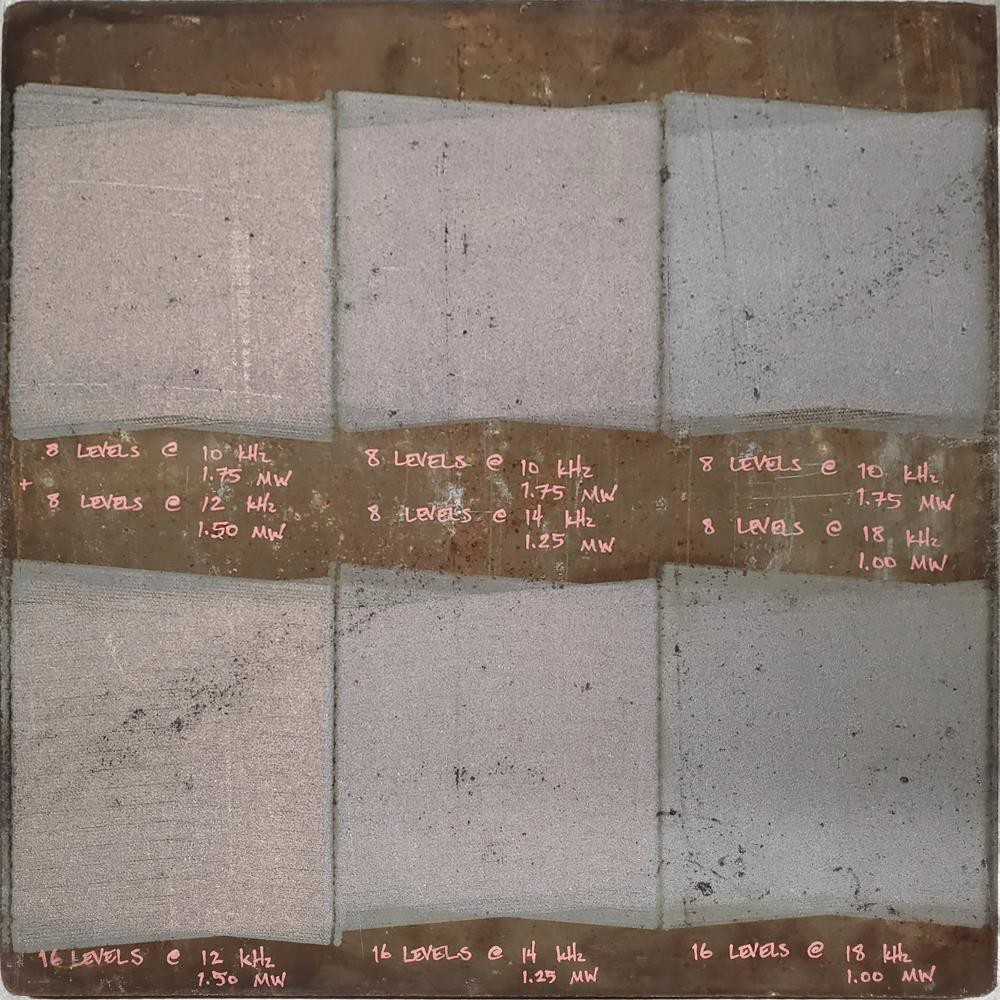 8 LEVELS @ 10 kHz
1.75 MW
+
8 LEVELS @ 12 kHz
1.50 MW
8 LEVELS @ 10 kHz
1.75 MW
8 LEVELS @ 14 kHz
1.25 MW
8 LEVELS @ 10 kHz
1.75 MW
8 LEVELS @ 18 kHz
1.00 MW
16 LEVELS @ 12 kHz
1.50 MW
16 LEVELS @ 14 kHz
1.25 MW
16 LEVELS @ 18 kHz
1.00 MW